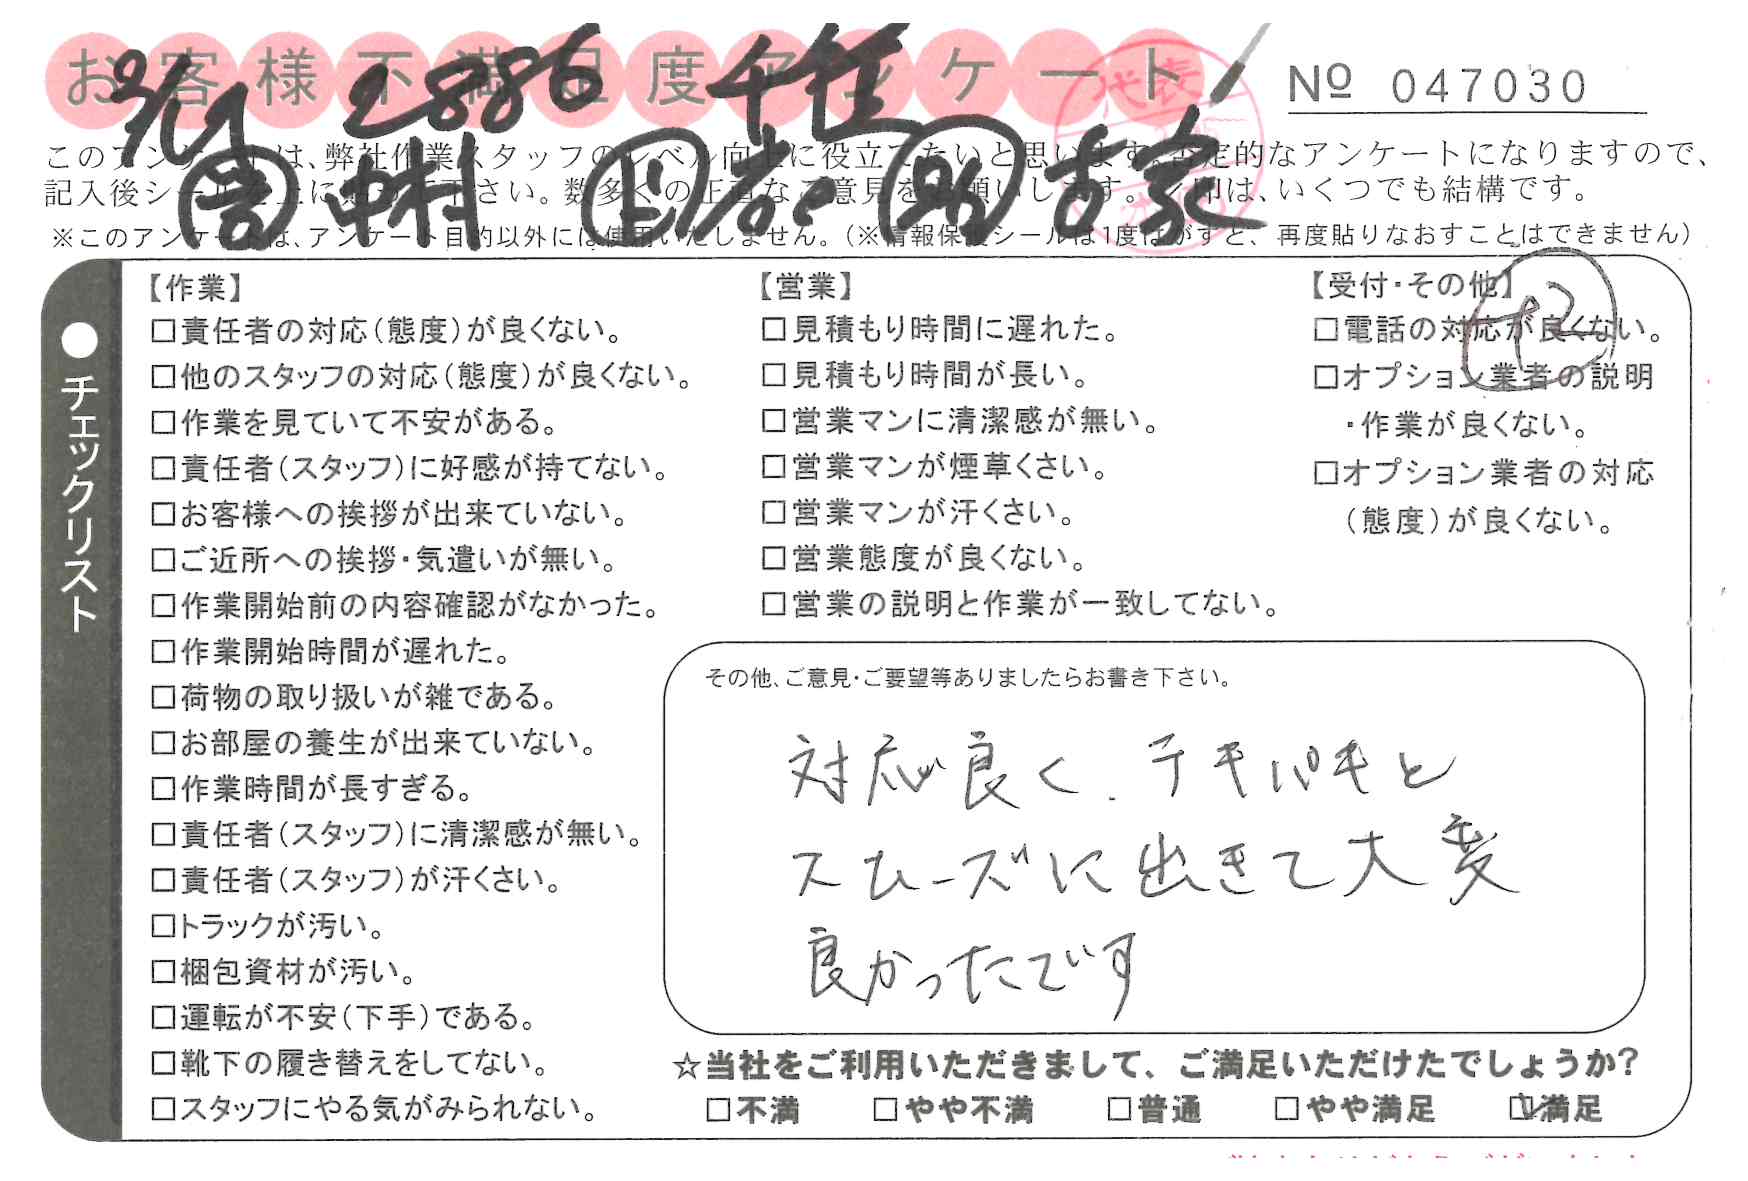 お客様不満足度アンケート
№ 047030
9/11 2886 千住
営 中村 古家
代表
このアンケートは、弊社作業スタッフのレベル向上に役立てたいと思います。否定的なアンケートになりますので、
記入後シールを上に貼って下さい。数多くの正直なご意見をお願いします。レ印は、いくつでも結構です。
※このアンケートは、アンケート目的以外には使用いたしません。（※情報保護シールは1度はがすと、再度貼りなおすことはできません）
+2
●チェックリスト
【作業】
□責任者の対応（態度）が良くない。
□他のスタッフの対応（態度）が良くない。
□作業を見ていて不安がある。
□責任者（スタッフ）に好感が持てない。
□お客様への挨拶が出来ていない。
□ご近所への挨拶・気遣いが無い。
□作業開始前の内容確認がなかった。
□作業開始時間が遅れた。
□荷物の取り扱いが雑である。
□お部屋の養生が出来ていない。
□作業時間が長すぎる。
□責任者（スタッフ）に清潔感が無い。
□責任者（スタッフ）が汗くさい。
□トラックが汚い。
□梱包資材が汚い。
□運転が不安（下手）である。
□靴下の履き替えをしてない。
□スタッフにやる気がみられない。
【営業】
□見積もり時間に遅れた。
□見積もり時間が長い。
□営業マンに清潔感が無い。
□営業マンが煙草くさい。
□営業マンが汗くさい。
□営業態度が良くない。
□営業の説明と作業が一致してない。
【受付・その他】
□電話の対応が良くない。
□オプション業者の説明
・作業が良くない。
□オプション業者の対応
（態度）が良くない。
その他、ご意見・ご要望等ありましたらお書き下さい。
対応良く、テキパキと
スムーズに出きて大変
良かったです
☆当社をご利用いただきまして、ご満足いただけたでしょうか?
□不満 □やや不満 □普通 □やや満足 ☑満足